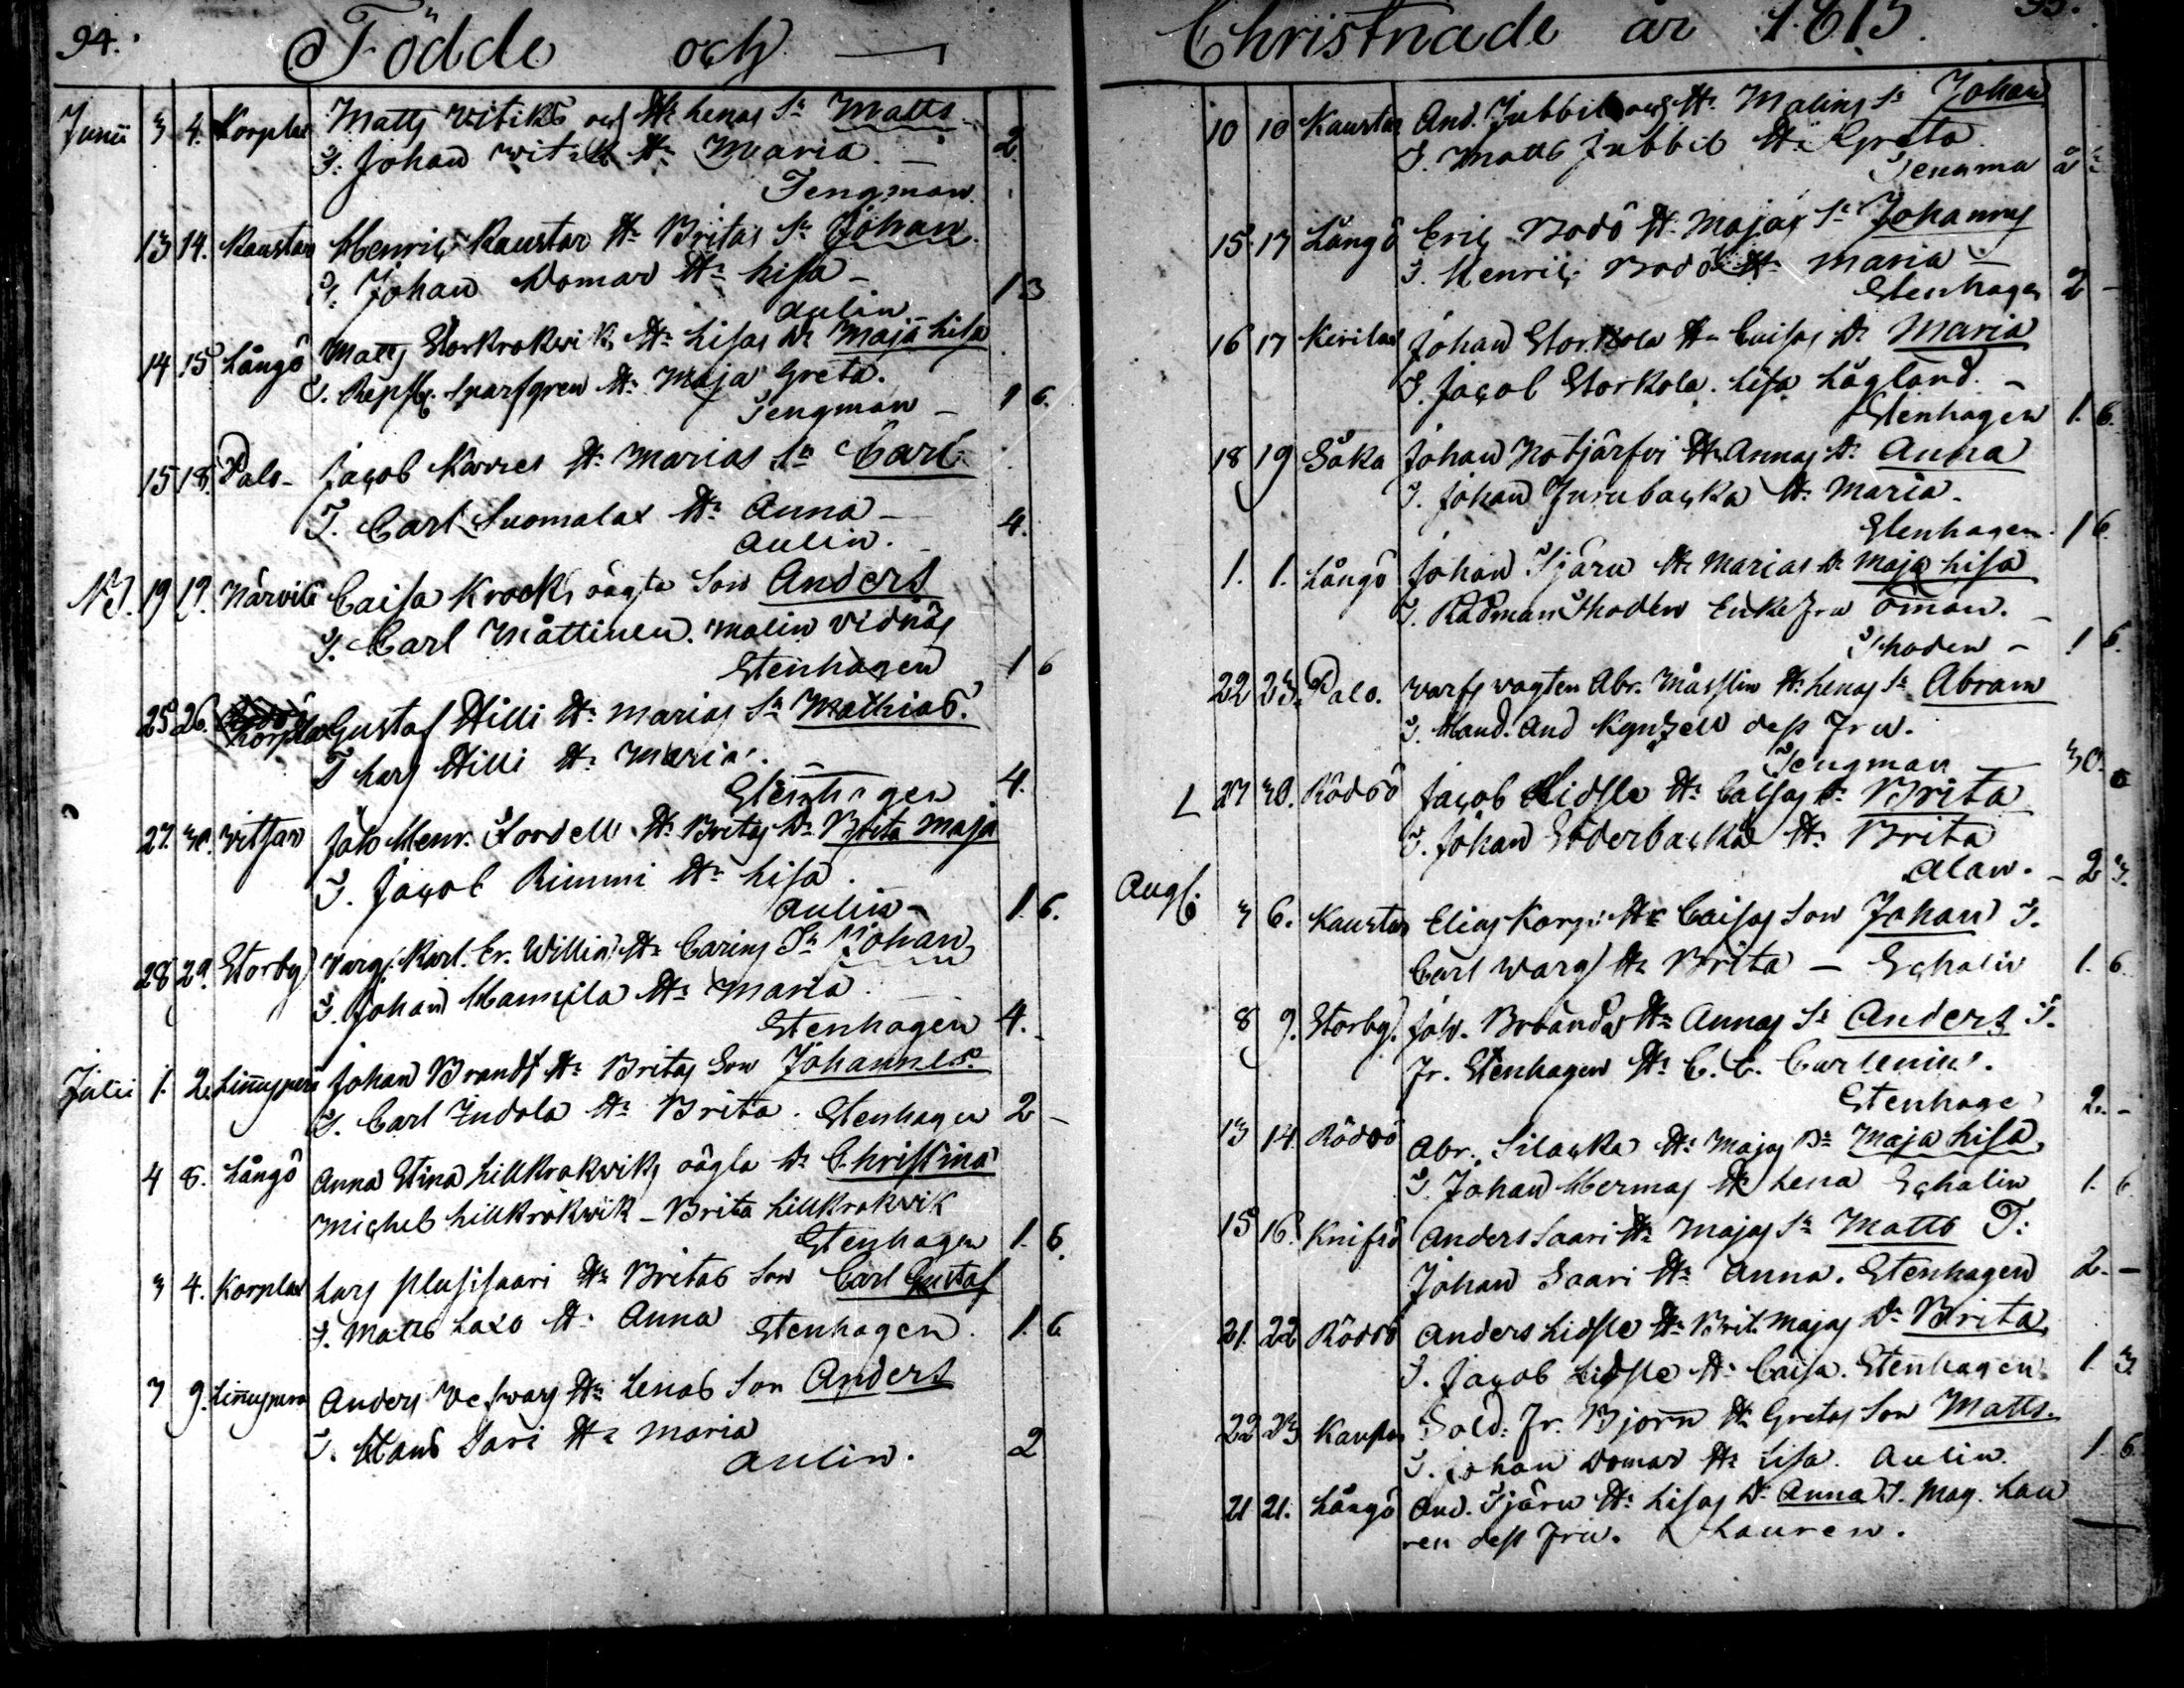 94.
Födde och
Junii 3 4. Korplax Matts Vitiks och H:s Lenas S:n Matts
T. Johan Witik H:u Maria. — 2.
Tengman.
13 14. Kaustar Henric Kaustar H:u Britas S:n Johan
T. Johan Domar H:u Lisa — 13
Aulin
14 15 Långö Matts Storkrokwik H:u Lisas D:r Maja Lisa
Sparfgren H:u Maja Greta.
Tengman — 1 6.
15 18. Palo- Jacob Karves H:u Marias S:n Carl
T. Carl Suomalax H:u Anna — 4.
Aulin.
19 19. Närvilä Caisa Krocks oägta Son Anders
T. Carl Måttinen. Malin Vidnäs
Stenhagen 1 6
25 26. Korplax Gustaf Hilli H:u Marias S:n Mathias.
T Lars Hilli H:u Maria.
Stenhagen 4.
27. 30. Vitsar Joh Henr. Tordell H:u Britas D:r Brita Maja
T. Jacob Rimmi H:u Lisa.
Aulin — 1. 6.
28 29. Storby Karl. Er. Willin H:u Carins S:n Johan
T. Johan Mannila H:u Maria.
Stenhagen 4.
Julii 1. 2. Linnusperä Johan Brandt H:u Britas Son Johannes.
T. Carl Indola H:u Brita. Stenhagen 2 —
4 8. Långö Anna Stina Lillkrokwiks oägta D:r Christina
Michel Lillkrokwik — Brita Lillkrokwik
Stenhagen 1. 6.
3 4. Korplax Lars Plusisaari H:u Britas Son Carl Gustaf
T. Matts Laxo H:u Anna Stenhagen. 1. 6
7 9. Linnusperä Anders H:u Lenas Son Anders
T. Hans Sari H:u Maria
Aulin. 2
95.
Christnade år 1815.
10 10 Kaustar And. Jubbil och H:u Malins S:n Johan
T. Matts Jubbil H:u Greta
Tengma 2
15 17 Långö Eric Bodö H:u Majas S:n Johannes
T. Henric Bodö H:u Maria —
Stenhagen 2 —
16 17 Kirilax Johan Storkola H:u Caisas D:r Maria
T. Jacob Storkola. Lisa Lågland. —
Stenhagen 1. 6.
18 19 Såka Johan Notjärfvi H:u Annas D:r Anna
T. Johan Jurubacka H:u Maria.
Stenhagen. 1 6.
1. 1. Långö Johan Tjäru H:u Marias D:r Maja Lisa
T. Rådman Thodén Enkefru Öman.
Thoden — 1 6.
22 23. Palo. Varfs vagten Abr. Måsslin H:u Lenas S:n Abram
T. Hand. And Kyntzell dess Fru.
Tengman — 30.
L 27 30. Rödsö Jacob Lidsle H:u Caisas D:r Brita
T. Johan Söderbacka H:u Brita
Alan. — 2 3.
Aug. 3 6. Kaustar Elias Korpi H:u Caisas Son Johan T.
Carl Warg H:u Brita — Echalin 1. 6.
8 9. Storby. Joh. Broända H:u Annas S:n Anders T.
Fr. Stenhagen H:u C. C. Carlenius.
Stenhage 2. —
13 14. Rödsö Abr. Silacka H:u Majas D:r Maja Lisa
T. Johan Hermas H:u Lena Echalin 1. 6
15 16. Knifsö Anders Saari H:u Majas S:n Matts T:
Johan Saari H:u Anna. Stenhagen 2. —
21. 22 Rödsö Anders Lidsle H:u Brit. Majas D:r Brita
T. Jacob Lidsle H:u Caisa. Stenhagen 1. 3.
22 23 Kaustar Sold: Fr. Björn H:u Gretas Son Matts.
T. Johan Domar H:u Lisa. Aulin 1. 6
21 21. Långö And. Tjäru H:u Lisas D:r Anna T. Mag. Lau
ren dess Fru. Lauren. —